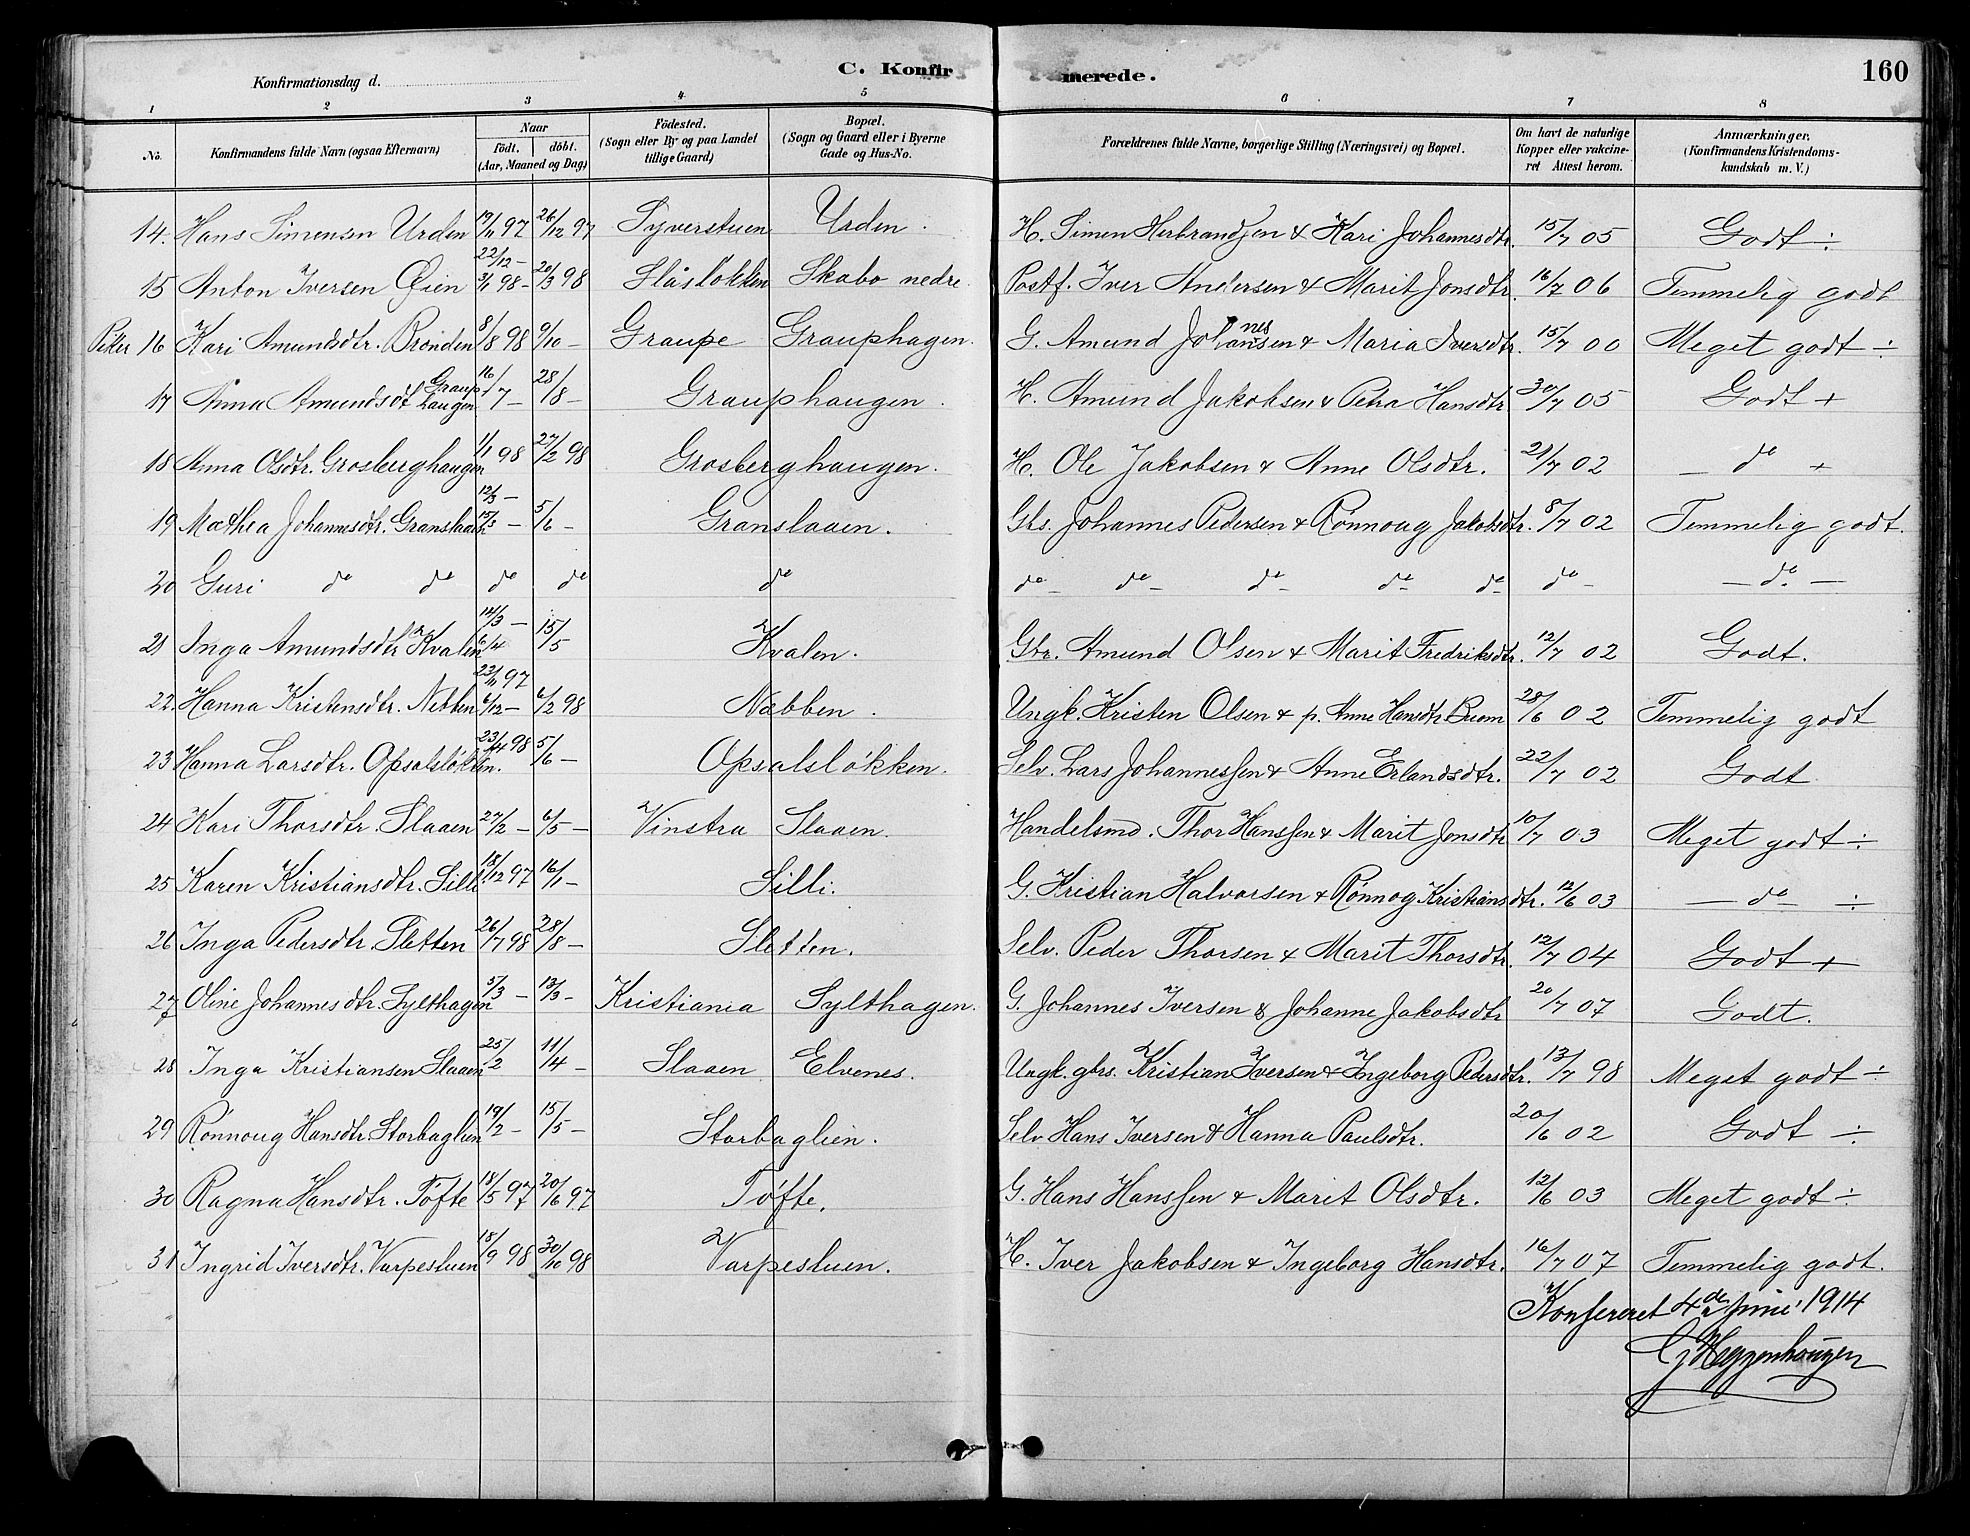 C. Konfirmerede. 160
Konfirmationsdag d.
1 2 3 4 5 6 7 8
No. Konfirmandens fulde Navn (ogsaa Efternavn) Naar født. døbt. (Aar, Maaned og Dag) Fødested. (Sogn eller By og paa Landet tillige Gaard) Bopæl. (Sogn og Gaard eller i Byerne Gade og Hus-No. Forældrenes fulde Navne, borgerlige Stilling (Næringsvei) og Bopæl. Om havt de naturlige Kopper eller vakcineret Attest herom. Anmærkninger. (Konfirmandens Kristendomskundskab m. V.)
14. Hans Simensen Urden 19/11 97 26/12 97 Syverstuen Urden. H. Simen Herbrandsen & Kari Johannesdtr. 15/7 05 Godt ÷
22/12 -
15 Anton Iversen Øien 3/1 98 - 20/3 98 Slåsløkken Skabo nedre. Postf. Iver Andersen & Marit Jonsdtr. 16/7 06 Temmelig godt
16 Kari Amundsdtr. Brønden 8/8 98 9/10 - Graupe Grauphagen. G. Amund Johannesen & Maria Iversdtr. 15/7 00 Meget godt ÷
17 Anna Amundsdt Grauphaugen 16/7 - 28/8 - Grauphaugen. H. Amund Jakobsen & Petra Hansdtr 30/7 05 Godt +
18 Anna Olsdtr. Grosberghaugen 1/1 98 27/2 98 Grosberghaugen. H. Ole Jakobsen & Anne Olsdtr. 21/7 02 - do +
12/3 -
19 Mathea Johannesdtr. Granslaaen 15/3 - 5/6 - Granslaaen. Gbs. Johannes Pedersen & Rønnoug Jakobsdtr. 8/7 02 Temmelig godt.
20 Guri do do do do do do - do - do - do - do - do - - do. -
14/3 -
21 Inga Amundsdtr Kvalen 6/4 15/5 Kvalen. Gbr. Amund Olsen & Marit Fredriksdtr. 12/7 02 Godt.
22/11 97
22. Hanna Kristensdtr. Nebben 6/12 - 6/2 98 Næbben. Ungk. Kristen Olsen & p. Anne Hansdtr. 28/6 02 Temmelig godt
23 Hanna Larsdtr. Opsalsløkken. 23/4 98 5/6 - Opsalsløkken. Selv. Lars Johannessen & Anne Erlandsdtr. 22/7 02 Godt
24 Kari Thorsdtr. Slaaen 27/2 - 6/5 - Vinstra Slaaen. Handelsmd. Thor Hanssen & Marit Jonsdtr 10/7 03 Meget godt ÷
25 Karen Kristiansdtr. Silli 18/12 97 16/1 - Silli. G. Kristian Halvorsen & Rønnog Kristiansdtr. 12/6 03 - do ÷
26 Inga Pedersdtr. Sletten 26/7 98 28/8 - Sletten. Selv. Peder Thorsen & Marit Thorsdtr. 12/7 04 Godt +
27 Oline Johannesdtr. Sylthagen 5/3 - 13/3 - Kristiania Sylthagen. G. Johannes Iversen & Johanne Jakobsdtr 20/7 07 Godt.
28 Inga Kristiansen Slaaen 25/2 11/4 - Slaaen Elvenes. Ungk. gbrs. Kristian Iversen & Ingeborg Pedersdtr. 13/7 98 Meget godt ÷
29 Rønnoug Hansdtr. Storbaglien 19/2 - 15/5 - Storbaglien. Selv Hans Iversen & Hanna Paulsdtr. 20/6 02 Godt ÷
30 Ragna Hansdtr. Tøfte 18/5 97 20/6 97 Tøfte. G. Hans Hanssen & Marit Olsdtr. 12/6 03 Meget godt ÷
31 Ingrid Iversdtr. Varpestuen 18/9 98 30/10 98 Varpestuen. H. Iver Jakobsen & Ingeborg Hansdtr. 16/7 07 Temmelig godt.
Konfereret 4de juni 1914
Heggenhougen